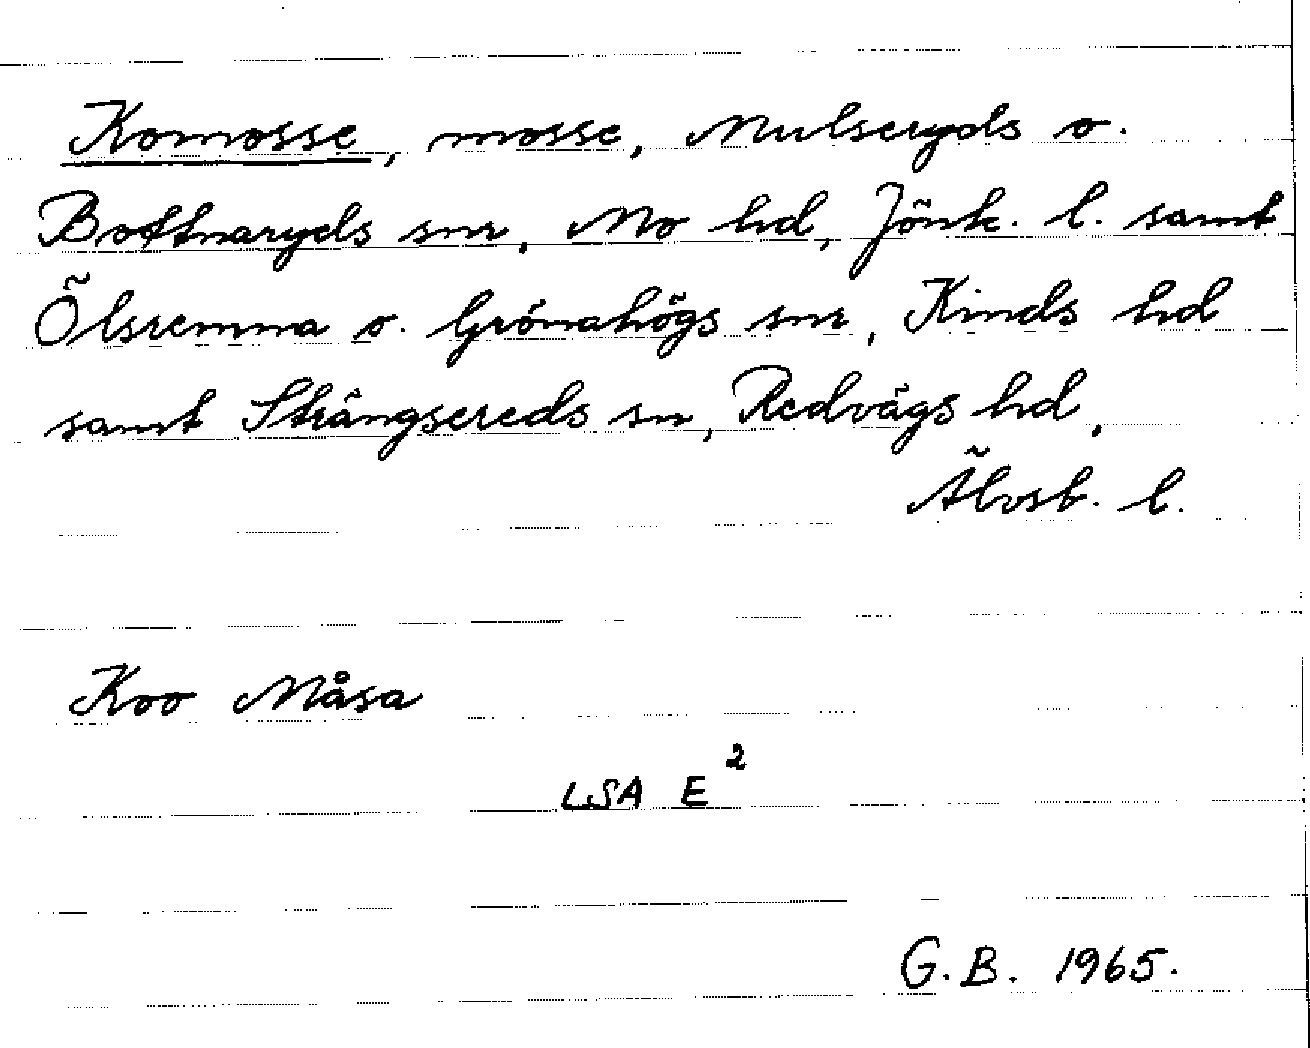 Komosse, mosse, Mulseryds o.
Bottnaryds snr, Mo hd, Jönk. l. samt
Ölsremma o. Grönahögs snr, Kinds hd
samt Strängsereds sn, Redvägs hd,
Älvsb. l.
Koo Måsa
LSA E²
G.B. 1965.